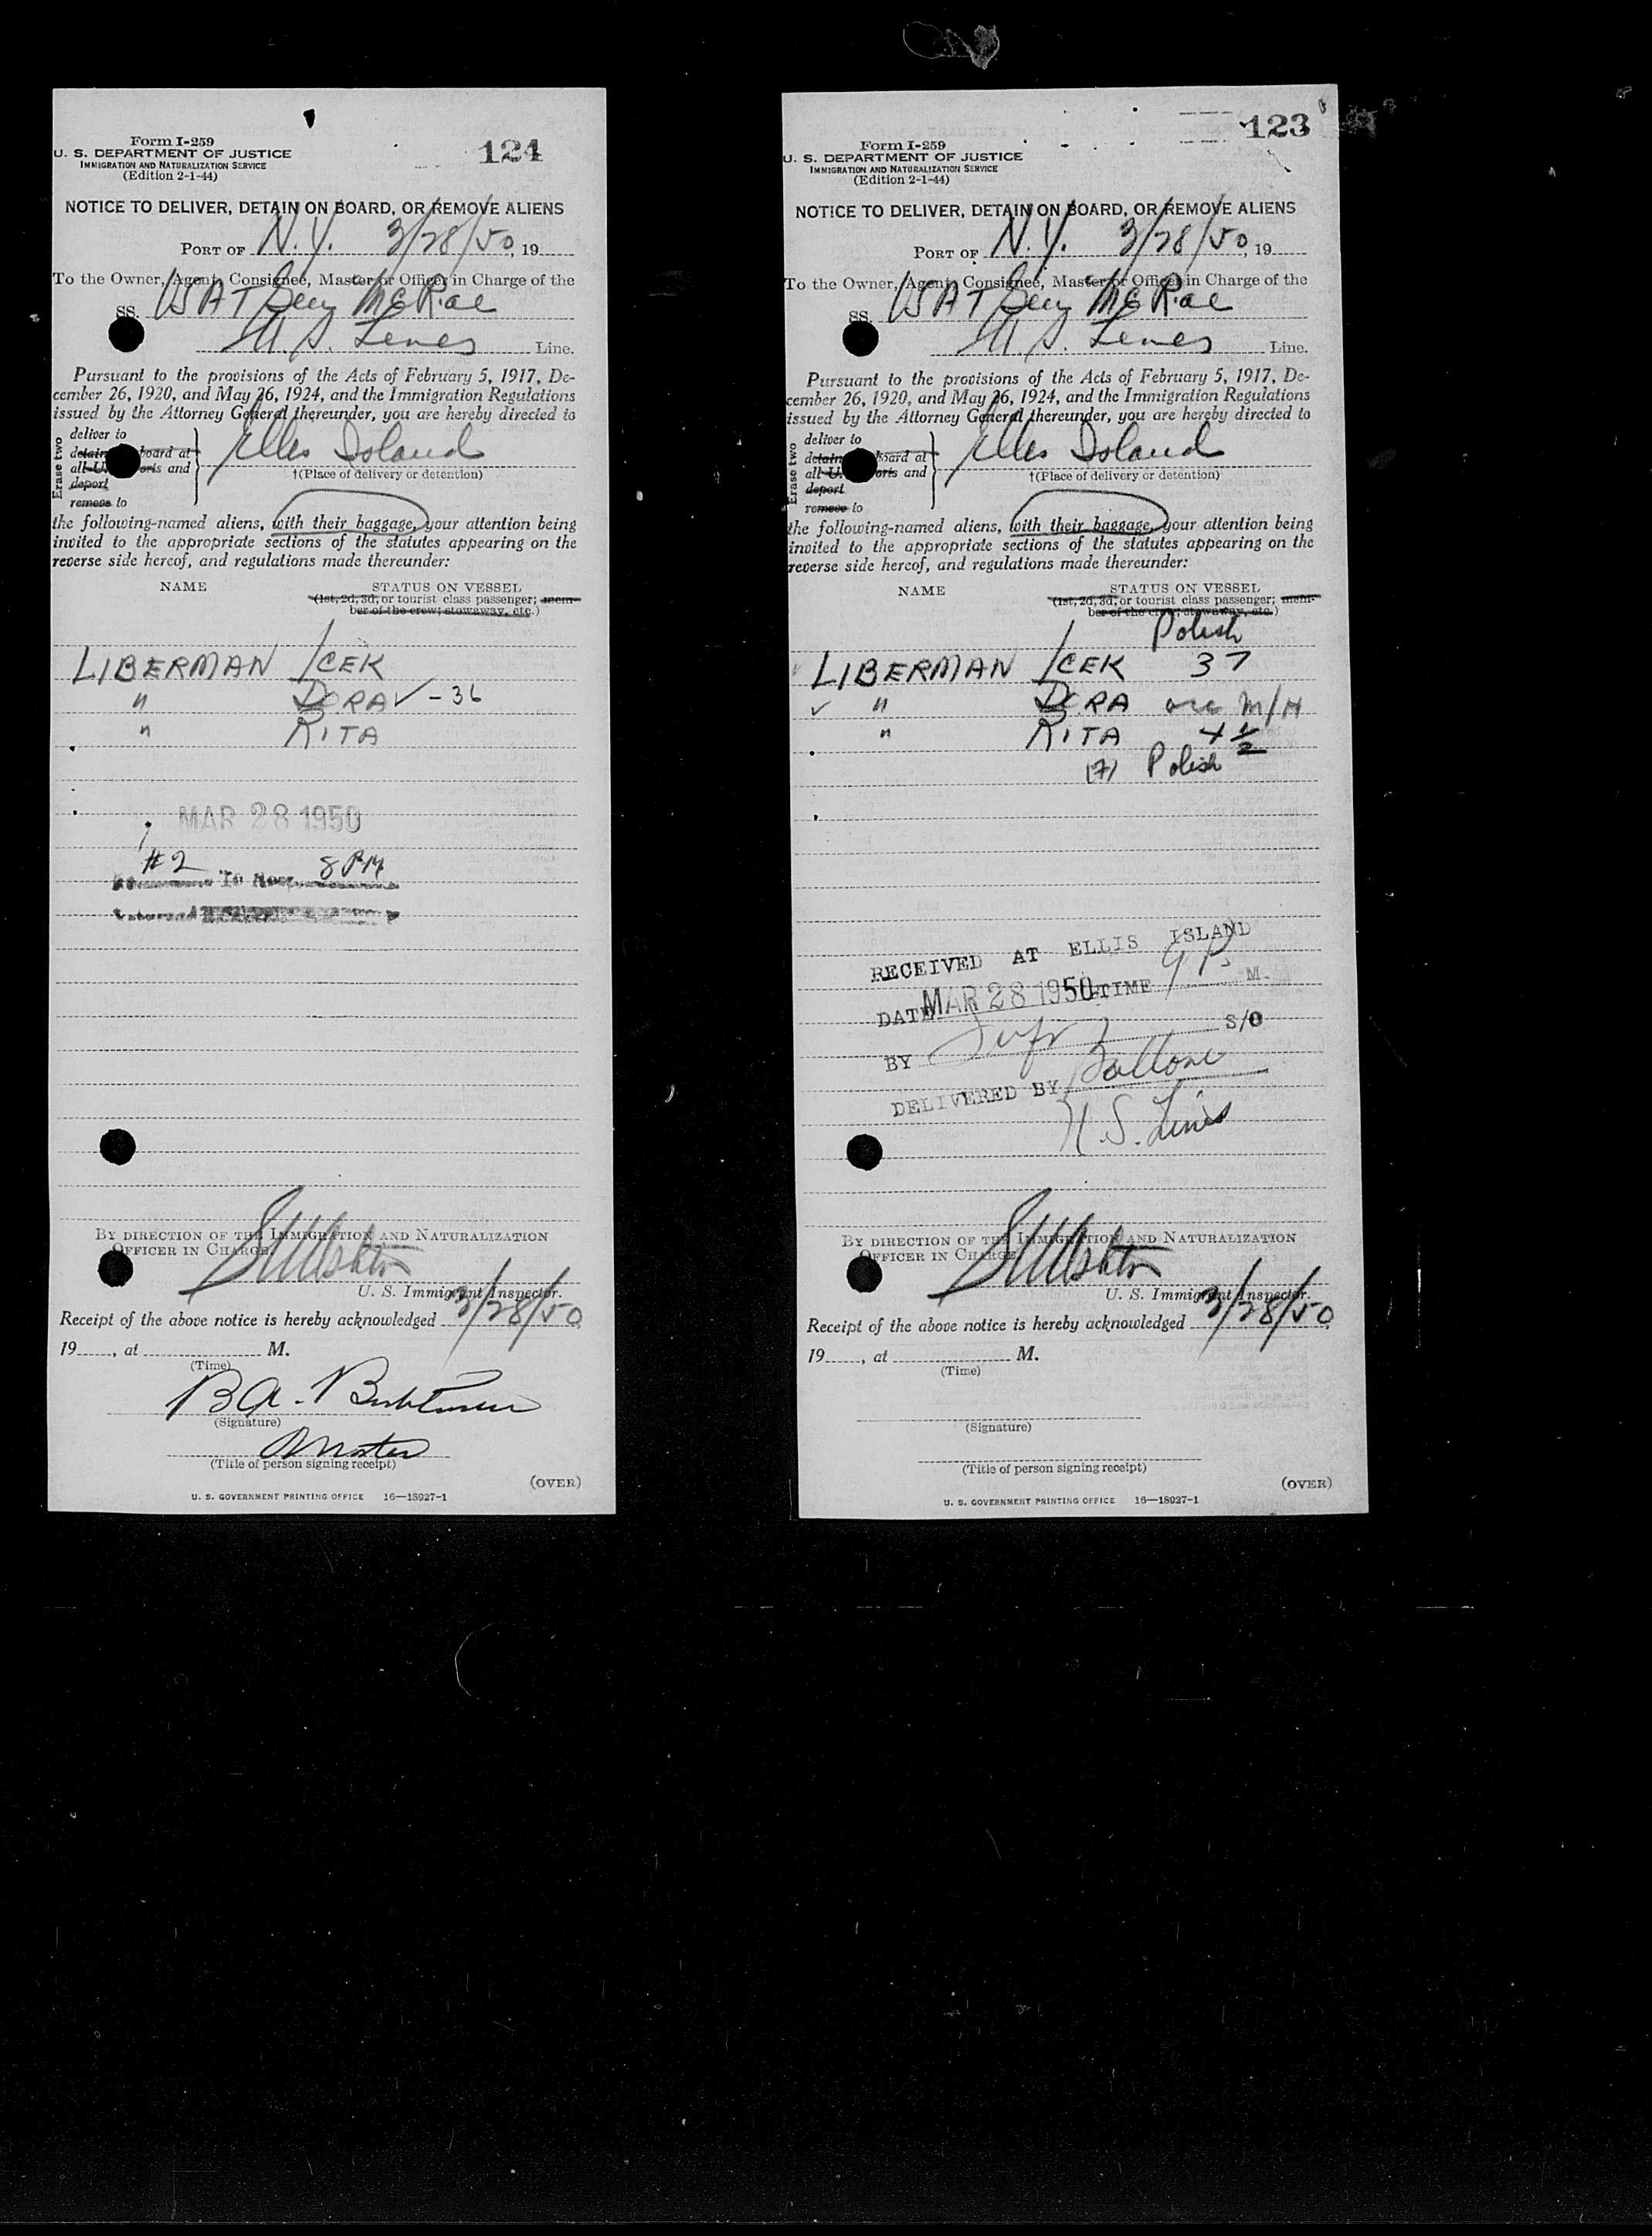 124
Form I-259
U. S. DEPARTMENT OF JUSTICE
IMMIGRATION AND NATURALIZATION SERVICE
(Edition 2-1-44)
NOTICE TO DELIVER, DETAIN ON BOARD, OR REMOVE ALIENS
PORT OF N.Y. 3/28/50, 19
To the Owner, Agent, Consignee, Master or Officer in Charge of the
SS. McRae
U.S. Lines Line.
Pursuant to the provisions of the Acts of February 5, 1917, De-
cember 26, 1920, and May 26, 1924, and the Immigration Regulations
issued by the Attorney General thereunder, you are hereby directed to
Erase two
deliver to
detain board at
all U. ports and
deport
remove to
Ellis Island
†(Place of delivery or detention)
the following-named aliens, with their baggage, your attention being
invited to the appropriate sections of the statutes appearing on the
reverse side hereof, and regulations made thereunder:
NAME STATUS ON VESSEL
(1st, 2d, 3d, or tourist class passenger; mem-
ber of the crew; stowaway, etc.)
LIBERMAN ICEK
" DORA ✓ - 36
" RITA
MAR 28 1950
#2 To 8 PM
BY DIRECTION OF THE IMMIGRATION AND NATURALIZATION
OFFICER IN CHARGE
U. S. Immigrant Inspector.
Receipt of the above notice is hereby acknowledged 3/28/50
19, at M.
(Time)
(Signature)
Master
(Title of person signing receipt)
(OVER)
U. S. GOVERNMENT PRINTING OFFICE 16—18927-1
123
Form I-259
U. S. DEPARTMENT OF JUSTICE
IMMIGRATION AND NATURALIZATION SERVICE
(Edition 2-1-44)
NOTICE TO DELIVER, DETAIN ON BOARD, OR REMOVE ALIENS
PORT OF N.Y. 3/28/50, 19
To the Owner, Agent, Consignee, Master or Officer in Charge of the
SS. McRae
U.S. Lines Line.
Pursuant to the provisions of the Acts of February 5, 1917, De-
cember 26, 1920, and May 26, 1924, and the Immigration Regulations
issued by the Attorney General thereunder, you are hereby directed to
Erase two
deliver to
detain board at
all U. ports and
deport
remove to
Ellis Island
†(Place of delivery or detention)
the following-named aliens, with their baggage, your attention being
invited to the appropriate sections of the statutes appearing on the
reverse side hereof, and regulations made thereunder:
NAME STATUS ON VESSEL
(1st, 2d, 3d, or tourist class passenger; mem-
ber of the crew; stowaway, etc.)
Polish
LIBERMAN ICEK 37
✓ " DORA M/H
" RITA 4 1/2
(7) Polish
RECEIVED AT ELLIS ISLAND
DATE MAR 28 1950 TIME 9 P. M.
BY S/O
DELIVERED BY
U.S. Lines
BY DIRECTION OF THE IMMIGRATION AND NATURALIZATION
OFFICER IN CHARGE
U. S. Immigrant Inspector.
Receipt of the above notice is hereby acknowledged 3/28/50
19, at M.
(Time)
(Signature)
(Title of person signing receipt)
(OVER)
U. S. GOVERNMENT PRINTING OFFICE 16—18927-1